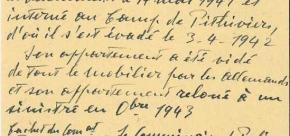 le 14 mai 1941 et
interné au Camp de Pithiviers,
d'où il s'est évadé le 3-4-1942
Son appartement a été vidé
de tout le mobilier par les allemands
et son appartement reloué à un
sinistré en 8bre 1943
Le Commissaire